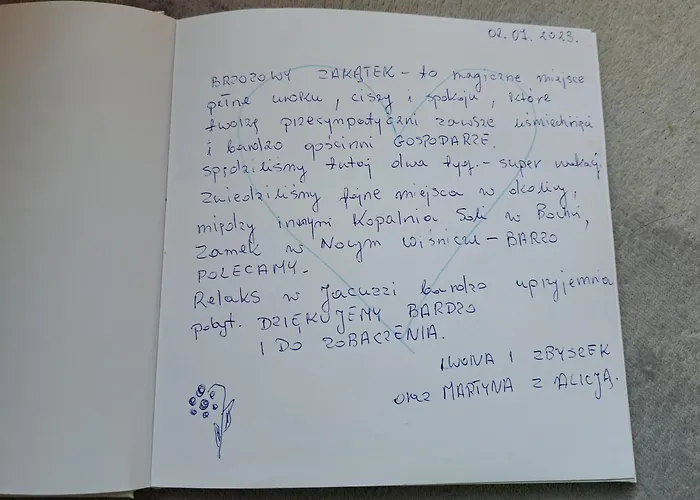 02.07.2023.
BRZOZOWY ZAKĄTEK - to magiczne miejsce
pełne uroku, ciszy i spokoju, które
tworzą przesympatyczni zawsze uśmiechnięci
i bardzo gościnni GOSPODARZE.
Spędziliśmy tutaj dwa tyg. - super wakacji.
Zwiedziliśmy fajne miejsca w okolicy,
między innymi Kopalnia Soli w Bochni,
Zamek w Nowym Wiśniczu - BARZO
POLECAMY.
Relaks w Jacuzzi bardzo uprzyjemnia
pobyt. DZIĘKUJEMY BARDZO
I DO ZOBACZENIA.
IWONA I ZBYSZEK
oraz MARTYNA Z ALICJĄ.